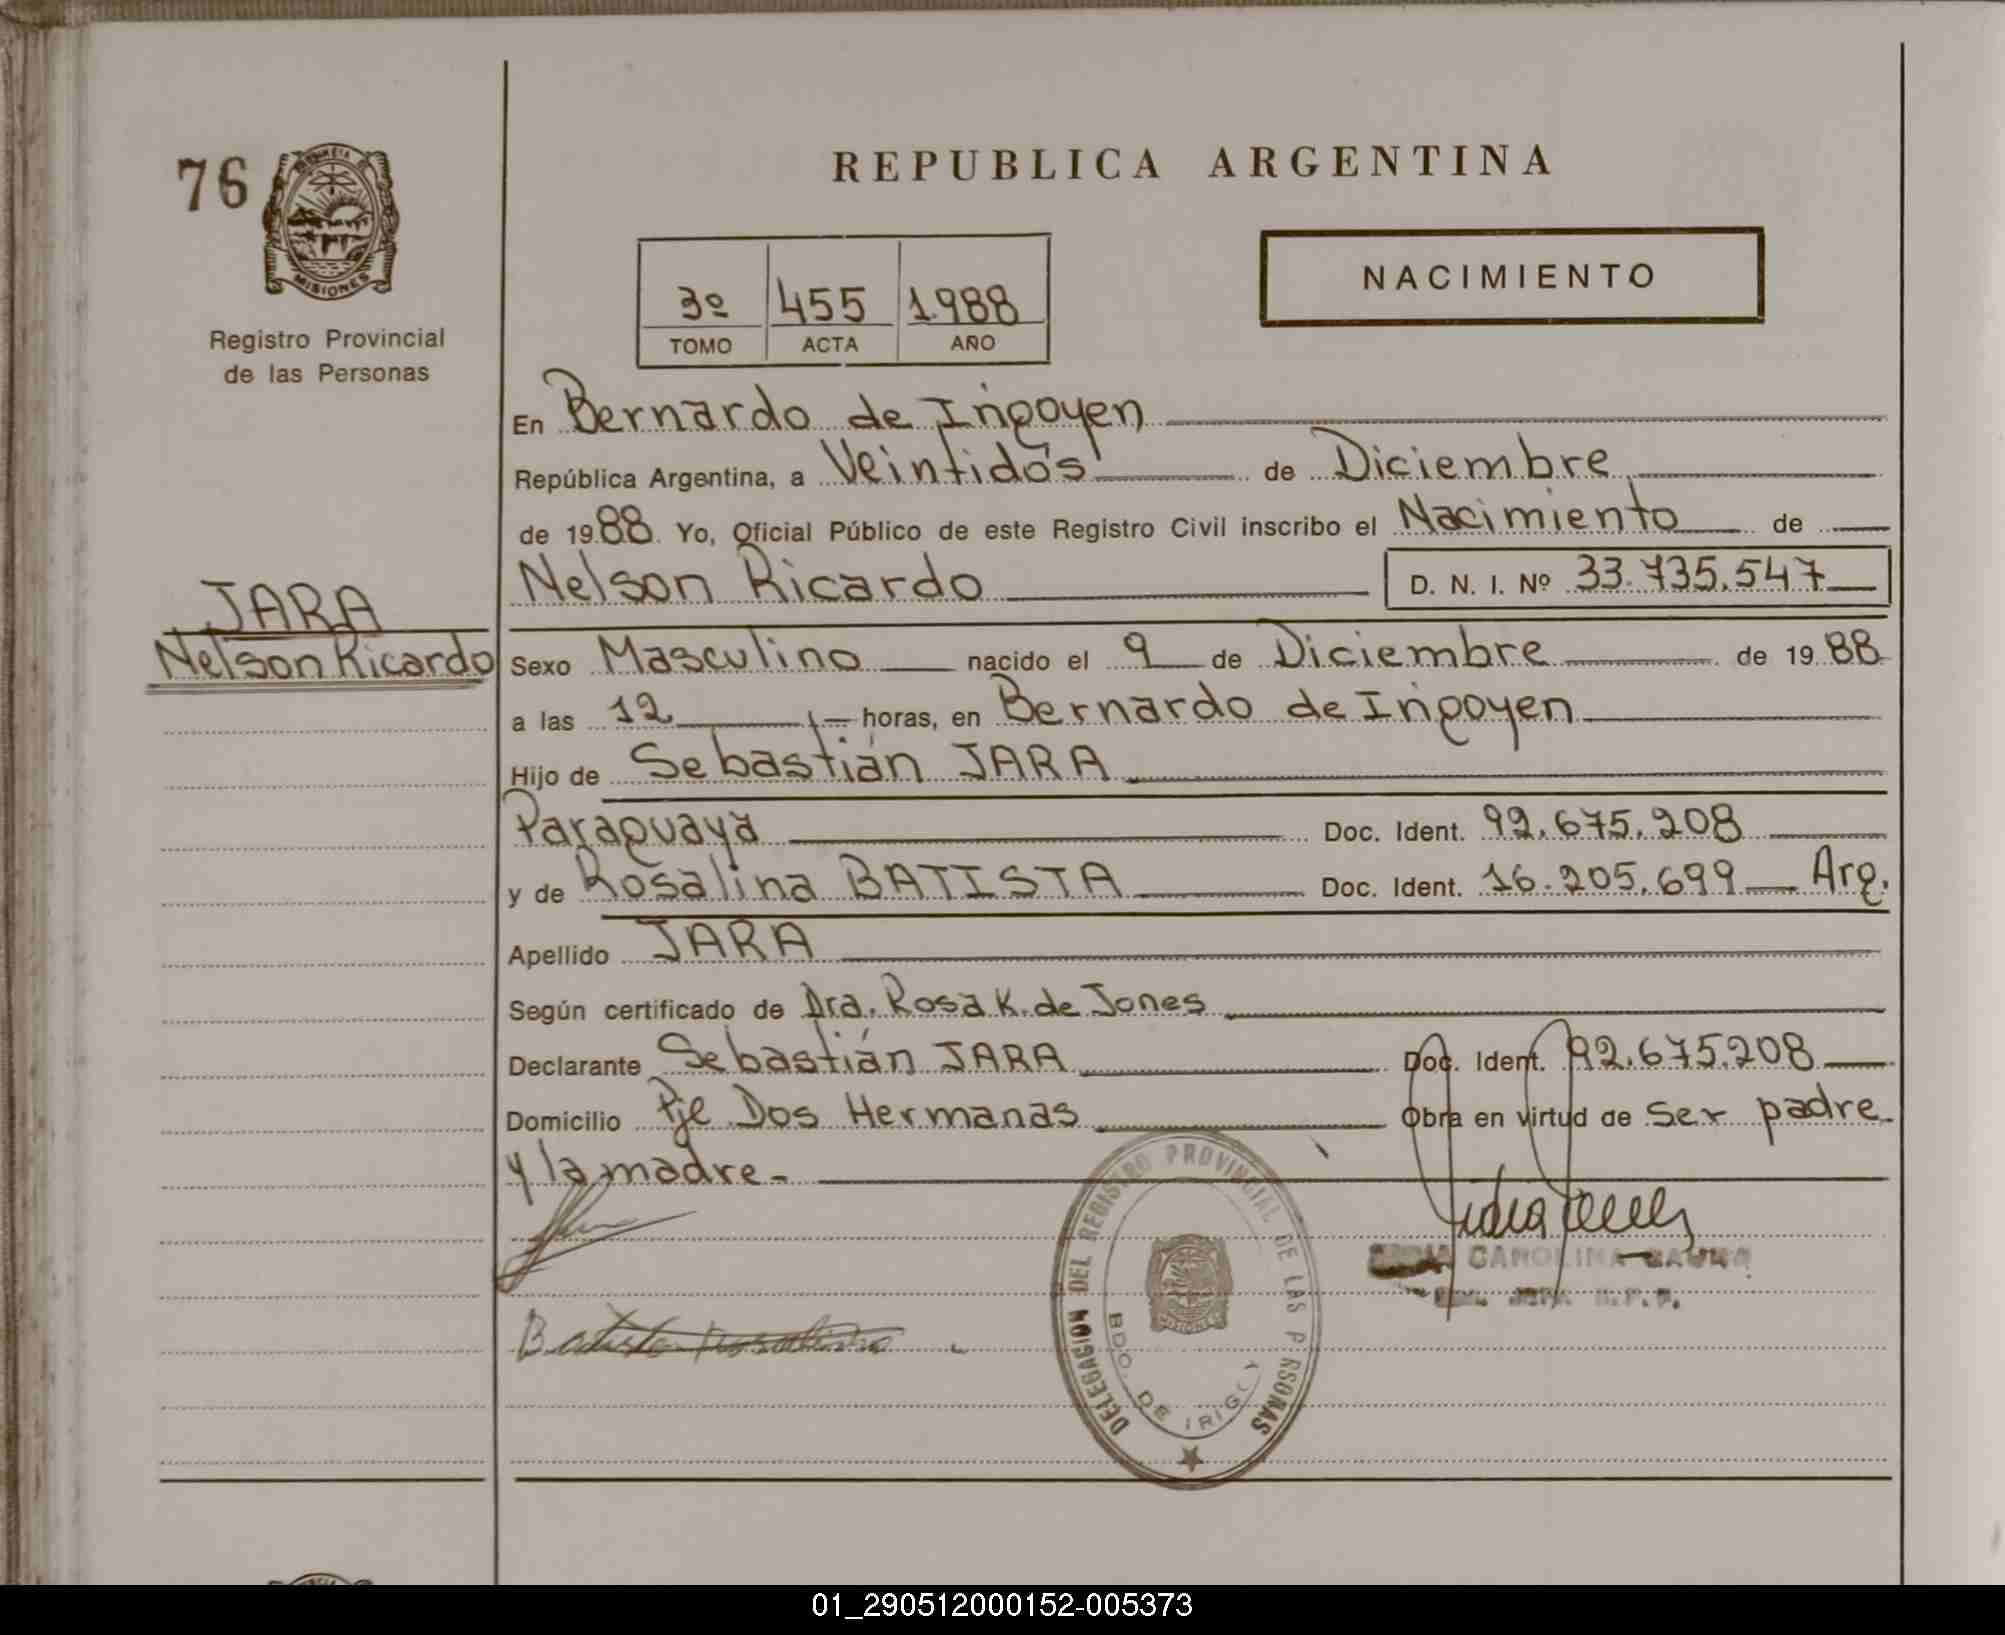 76
PROVINCIA DE
MISIONES
Registro Provincial
de las Personas
REPUBLICA ARGENTINA
NACIMIENTO
3º 455 1.988
TOMO ACTA AÑO
En Bernardo de Irigoyen
República Argentina, a Veintidós de Diciembre
de 1988. Yo, Oficial Público de este Registro Civil inscribo el Nacimiento de
Nelson Ricardo D. N. I. Nº 33.735.547
JARA
Nelson Ricardo
Sexo Masculino nacido el 9 de Diciembre de 1988
a las 12 horas, en Bernardo de Irigoyen
Hijo de Sebastián JARA
Paraguaya Doc. Ident. 92.675.208
y de Rosalina BATISTA Doc. Ident. 16.205.699 Arg.
Apellido JARA
Según certificado de Dra. Rosa K. de Jones
Declarante Sebastián JARA Doc. Ident. 92.675.208
Domicilio Pje Dos Hermanas Obra en virtud de ser padre
y la madre.
Batista Rosalina
DELEGACION DEL REGISTRO PROVINCIAL DE LAS P RSONAS
MISIONES
BDO. DE IRIG Y
CAROLINA
01_290512000152-005373